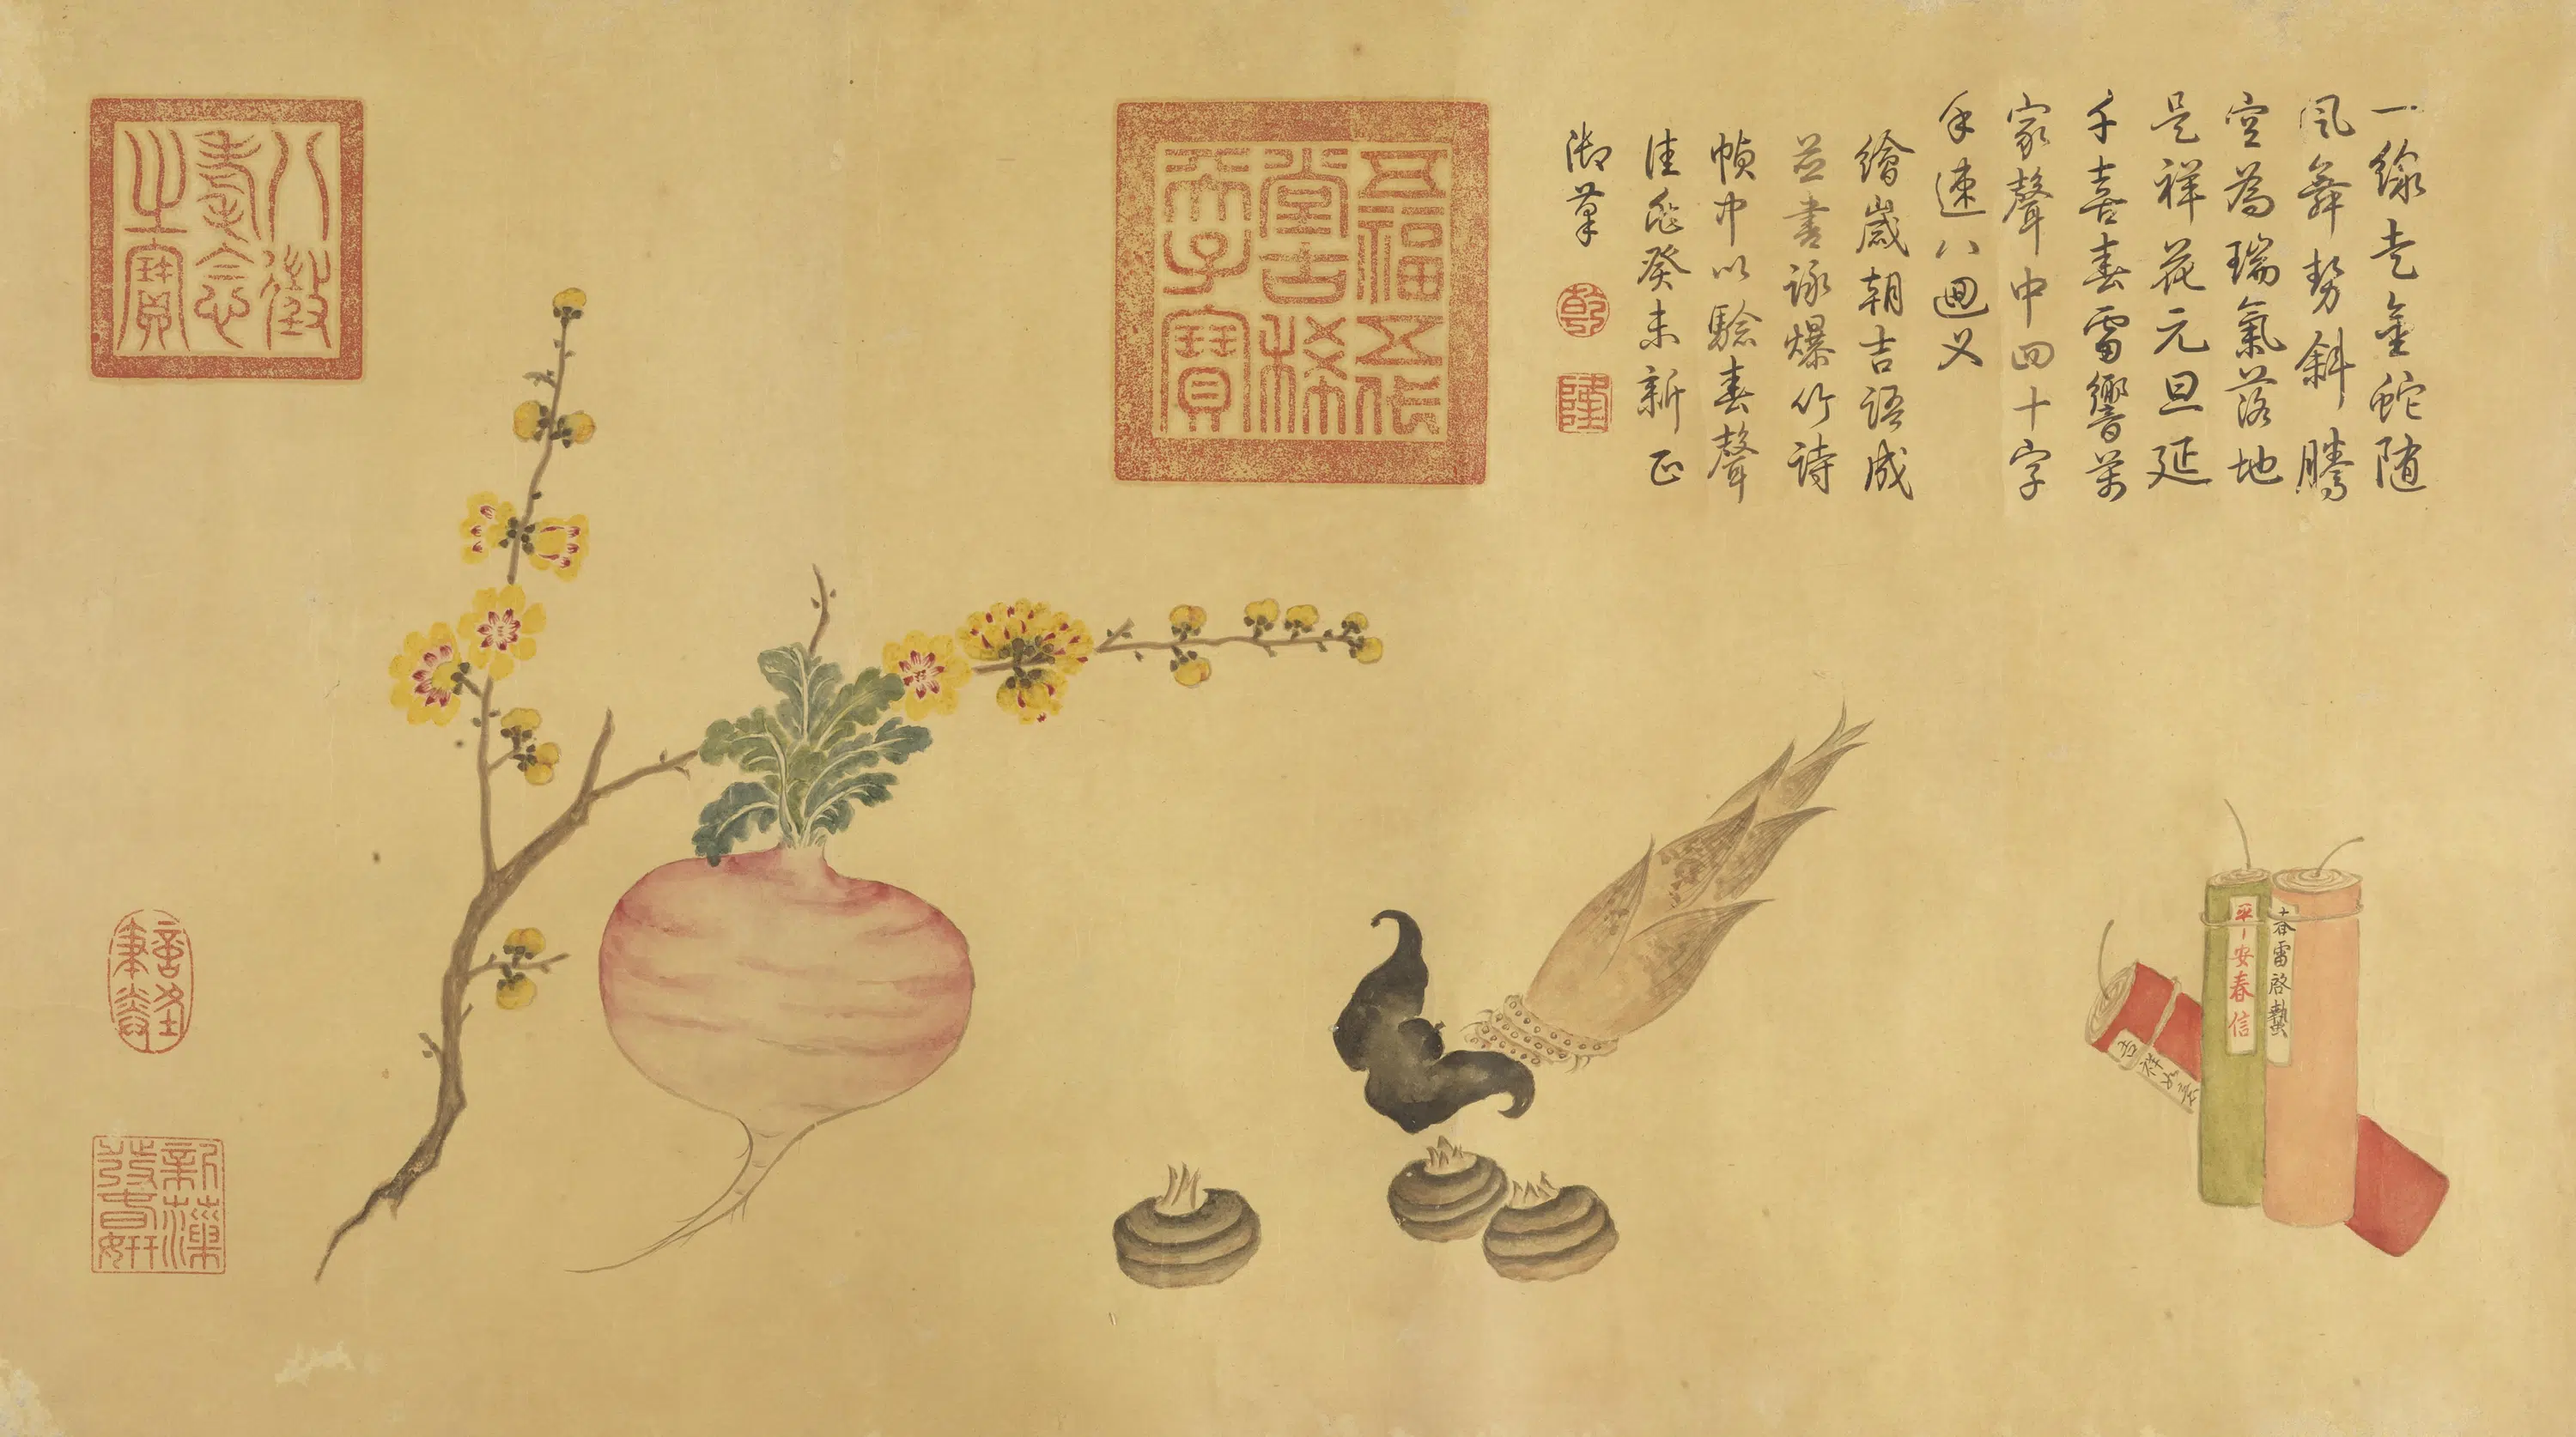 一線走金蛇隨
風舞勢斜騰
空為瑞氣落地
是祥花元旦延
千喜春雷響萬
家聲中四十字
手速八迴叉
繪歲朝吉語成
並書詠爆竹詩
幀中以驗春聲
佳兆癸未新正
御筆
乾
隆
五福五代
堂古稀
天子寶
八徵
耄念
之寶
平安春信
春雷啓蟄
吉祥如意
新藻
發春妍